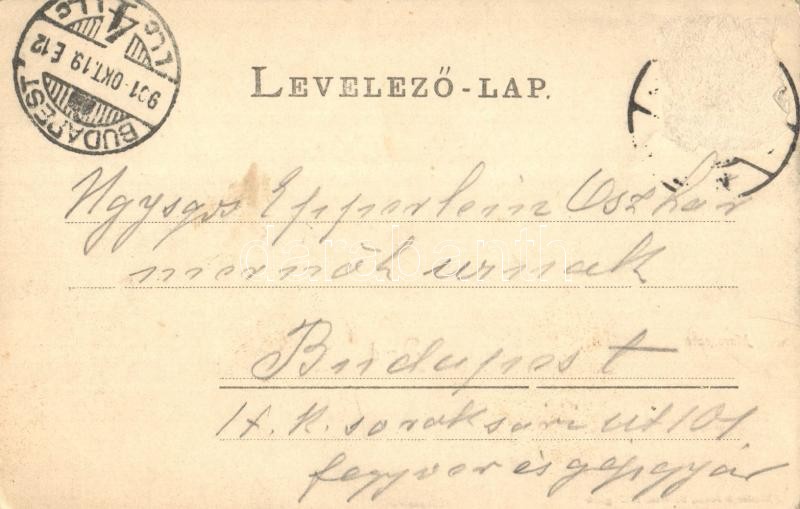 BUDAPEST
901 OKT.19. E.12
4
LEVELEZŐ-LAP.
Ngysgos Epperlein Oszkár
mernök urnak
darabanth
Budapest
IX. k. soroksári út 101
fegyver és gépgyár